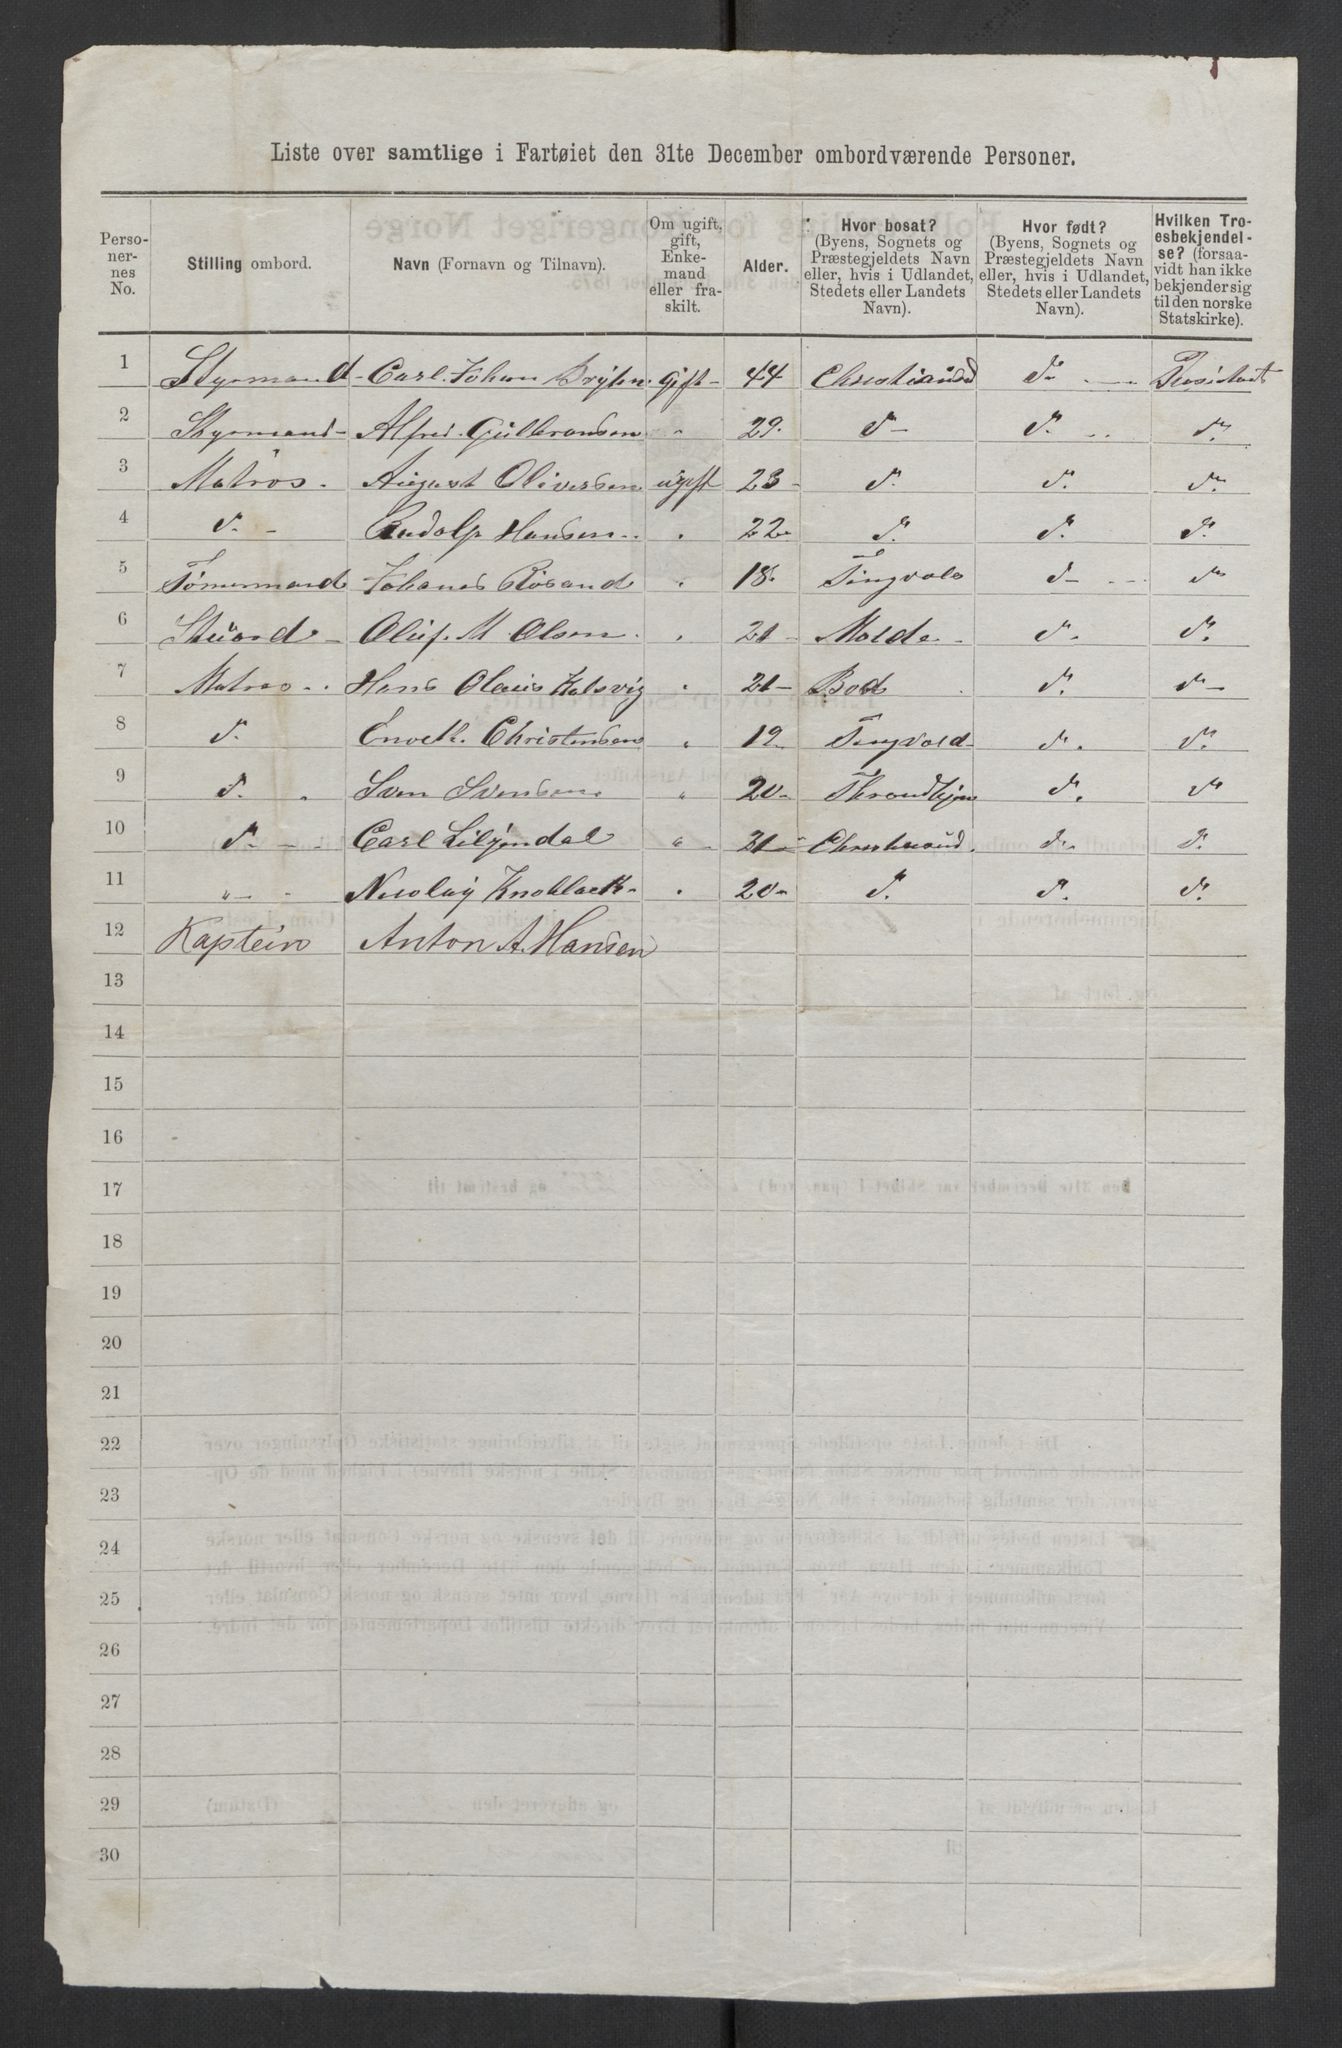 Liste over samtlige i Fartøiet den 31te December ombordværende Personer.
Personernes No. | Stilling ombord. | Navn (Fornavn og Tilnavn). | Om ugift, gift, Enkemand eller fraskilt. | Alder. | Hvor bosat? (Byens, Sognets og Præstegjeldets Navn eller, hvis i Udlandet, Stedets eller Landets Navn). | Hvor født? (Byens, Sognets og Præstegjeldets Navn eller, hvis i Udlandet, Stedets eller Landets Navn). | Hvilken Troesbekjendelse? (forsaavidt han ikke bekjender sig til den norske Statskirke).
1 Styrmand - Carl Johan gift - 44 Christiansund d°
2 Styrmand - Alfred Gulbransen " 29. d° d° d°
3 Matros - August Oliversen ugift 23 - d° d° d°
4 d° - Rudolf Hansen " 22 - d° d° d°
5 Tømermand Johanes Røsand " 18 Tingvold d° d°
6 Stüard - Oluf M Olsen " 21 - Molde d° d°
7 Matros - Hans Olaus " 21 - Bod d° d°
8 d° Enock Christensen " 19 Tingvold d° d°
9 d° Sven Svensen " 20 - Throndhjem d° d°
10 d° - Carl Liljendal " 21 Christiansund d° d°
11 " - Nicolay Knoblack - " 20 - d° d° d°
12 Kaptein Anton A. Hansen
13
14
15
16
17
18
19
20
21
22
23
24
25
26
27
28
29
30